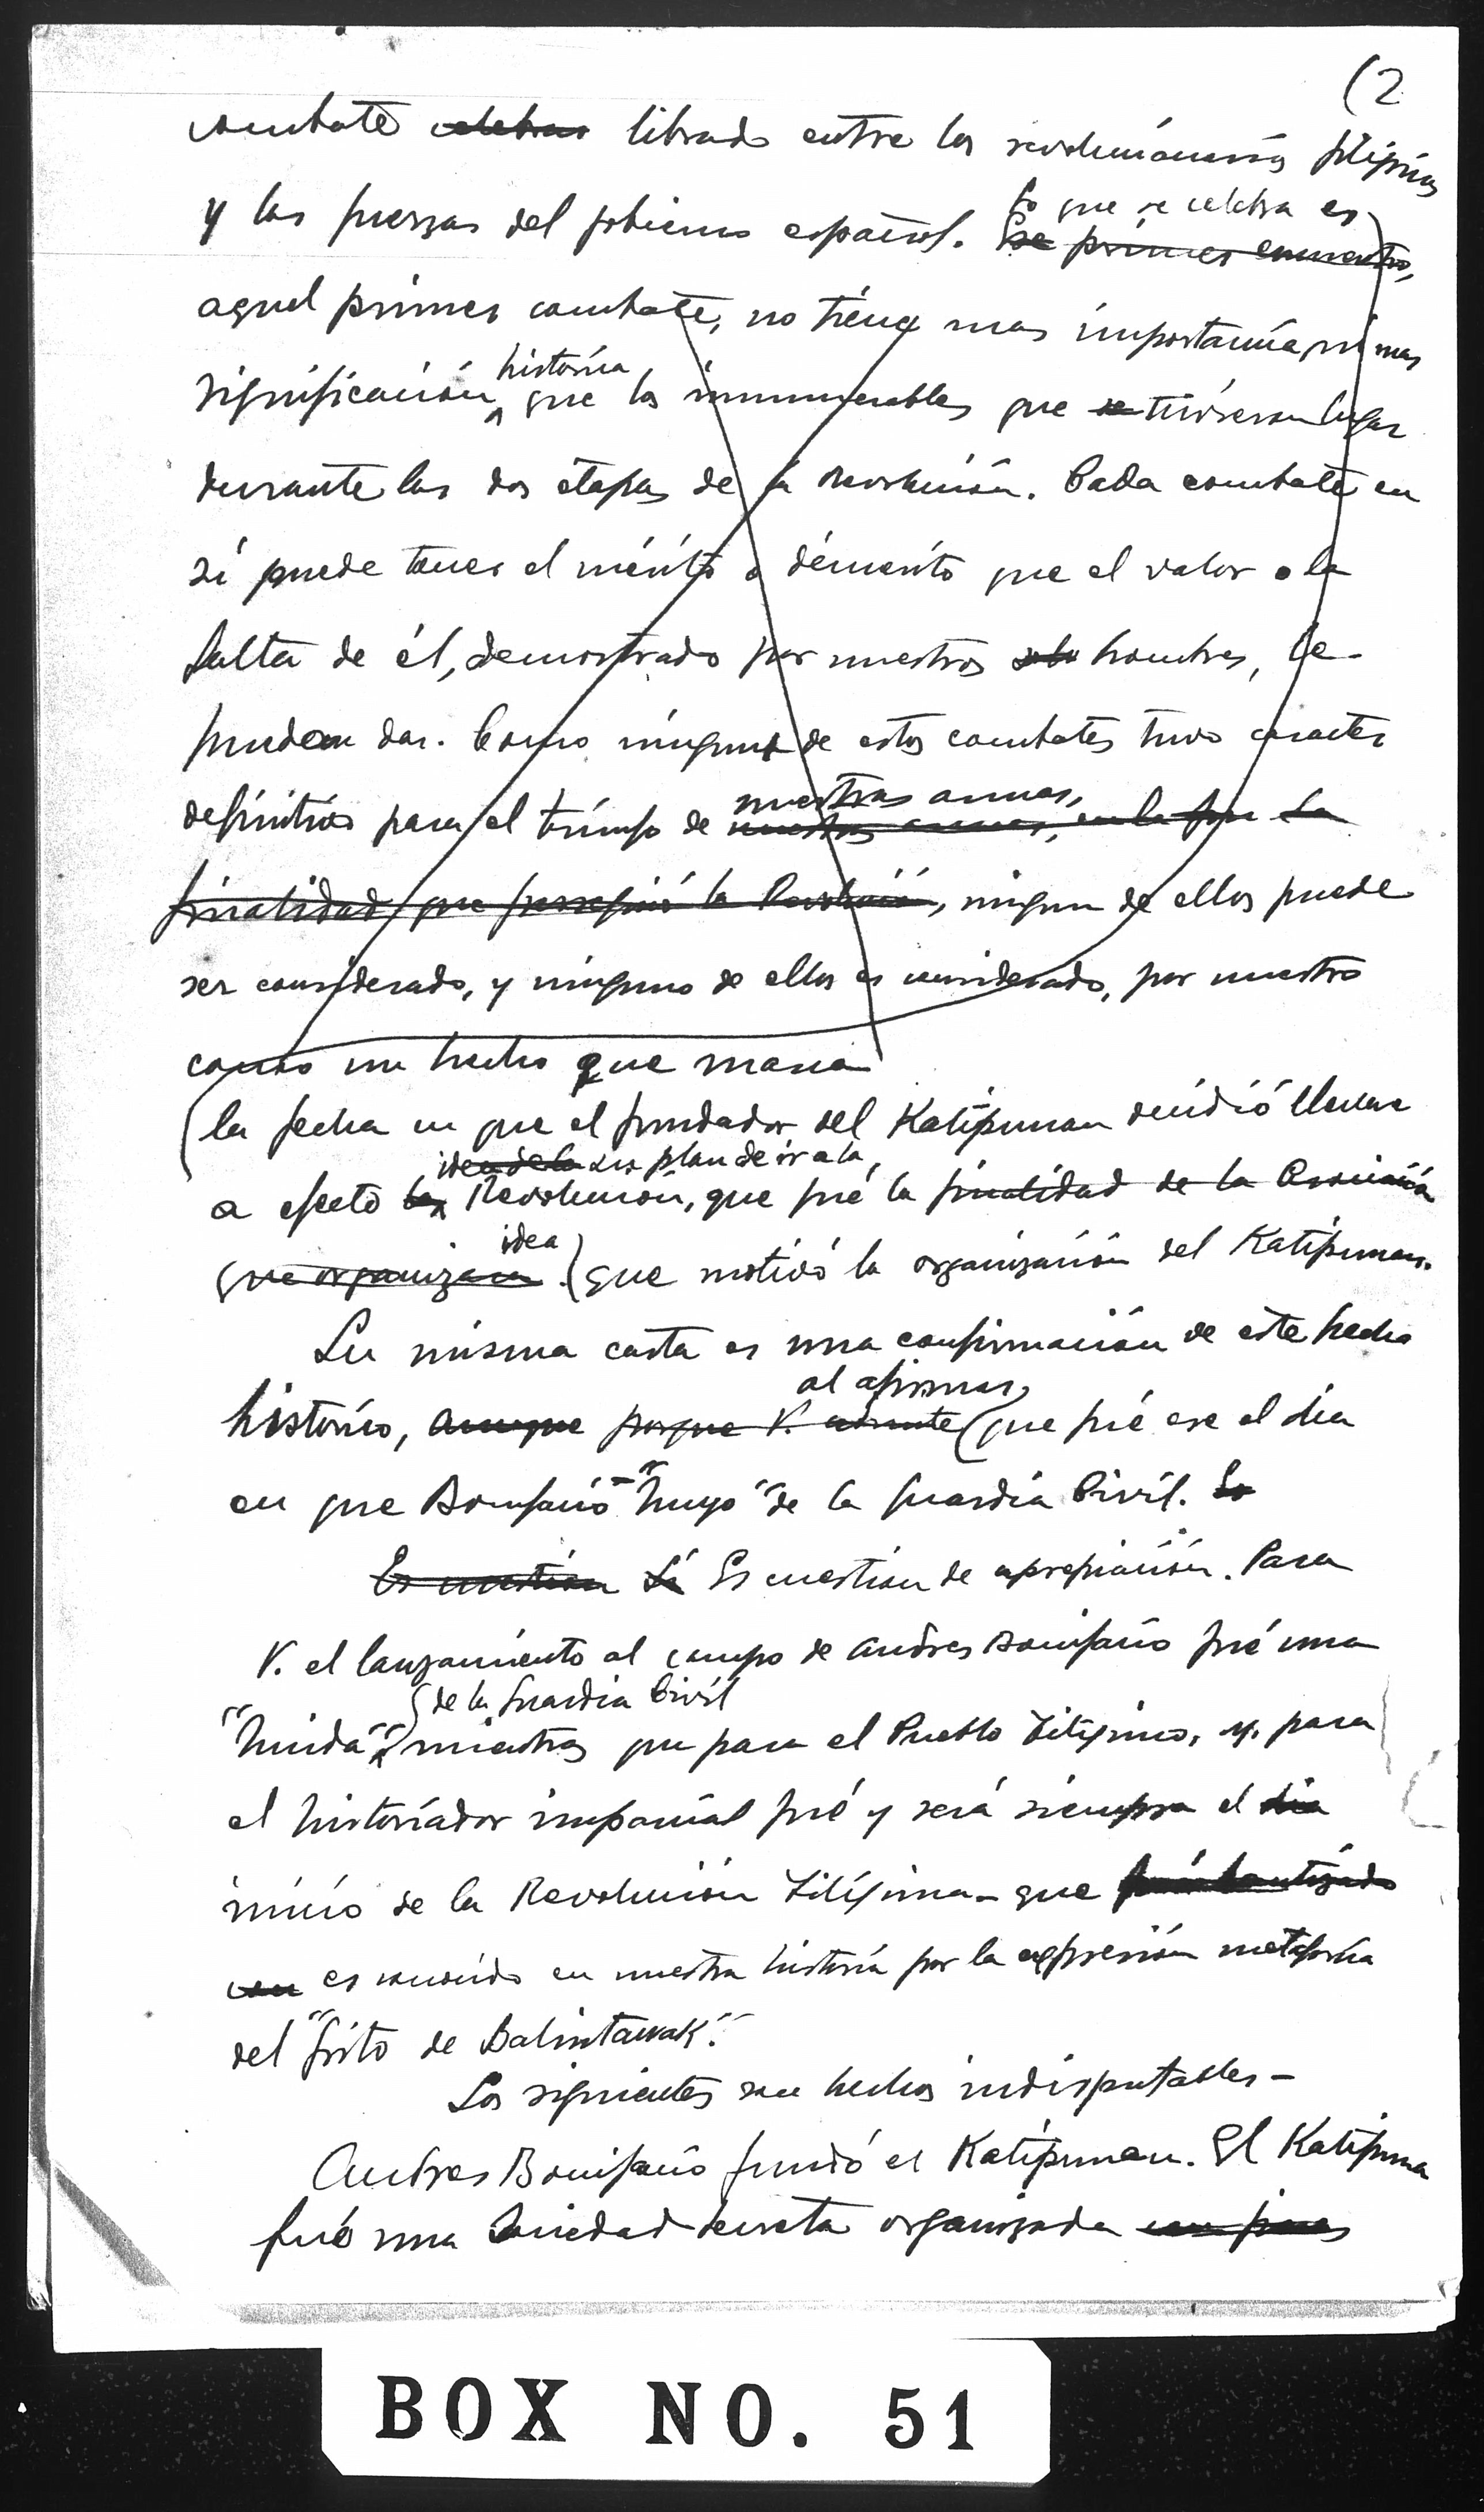 (2
combate celebrado librado entre los revolucionarios filipinos
y las fuerzas del gobierno español. Lo que se celebra es
Ese primer encuentro,
aquel primer combate, no tiene mas importancia, ni mas
historica
significación que los innumerables que se tuvieron lugar
durante las dos etapas de la Revolución. Cada combate en
si puede tener el mérito o démerito que el valor o la
falta de él, demostrado por nuestros hombres, le
puedan dar. Como ninguno de estos combates tuvo caracter
nuestras armas,
definitivo para el triunfo de nuestras armas, en la que la
finalidad que persiguió la Revolución, ninguno de ellos puede
ser considerado, y ninguno de ellos es considerado, por nuestro
como un hecho que marca
(la fecha en que el fundador del Katipunan decidió llevar
idea de la su plan de ir a la
a efecto la Revolución, que fué la finalidad de la Asociación
idea
que organizara (que motivó la organización del Katipunan.
Su misma carta es una confirmación de este hecho
al afirmar
histórico, aunque porque V. admite (que fué ese el dia
en que Bonifacio "huyo" de la Guardia Civil. Lo
Es cuestión Si Es cuestión de apreciación. Para
V. el lanzamiento al campo de Andres Bonifacio fué una
(de la Guardia Civil
"huida" mientras que para el Pueblo Filipino, y para
el historiador imparcial fué y será siempre el dia
inicio de la Revolución Filipina- que fué bautizado
con es conocido en nuestra historia por la expresión metaforica
del "Grito de Balintawak".
Los siguientes son hechos indisputables-
Andres Bonifacio fundó el Katipunan. El Katipunan
fué una Sociedad secreta organizada con fines
BOX NO. 51